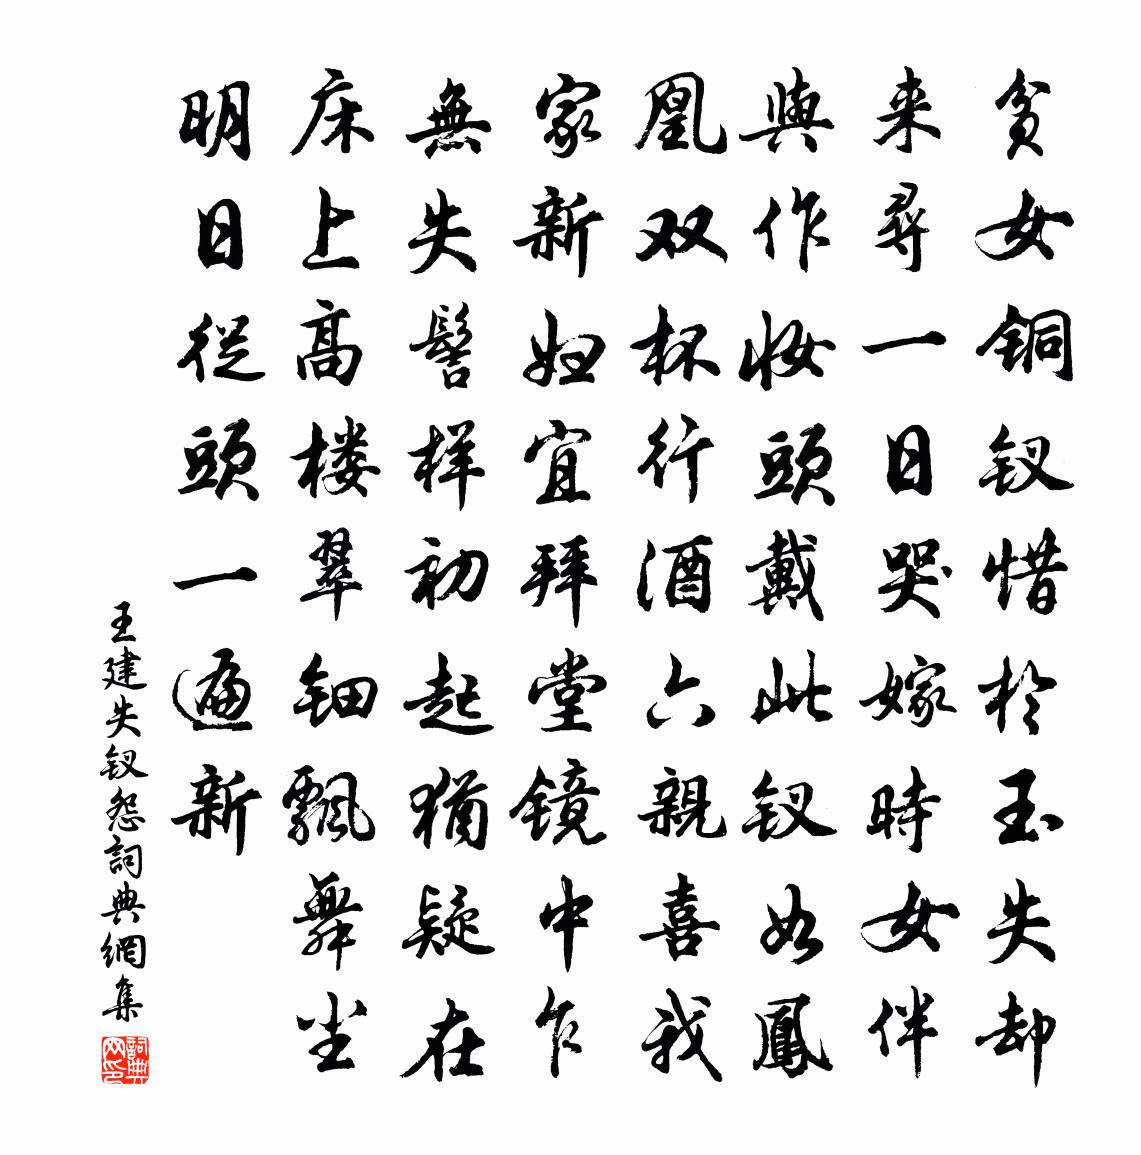 贫女铜钗惜於玉失却
来尋一日哭嫁時女伴
與作妆頭戴此钗如鳳
凰双杯行酒六親喜我
家新妇宜拜堂镜中乍
無失髻样初起猶疑在
床上高楼翠钿飄舞尘
明日從頭一遍新
王建失钗怨詞典網集
詞典网印